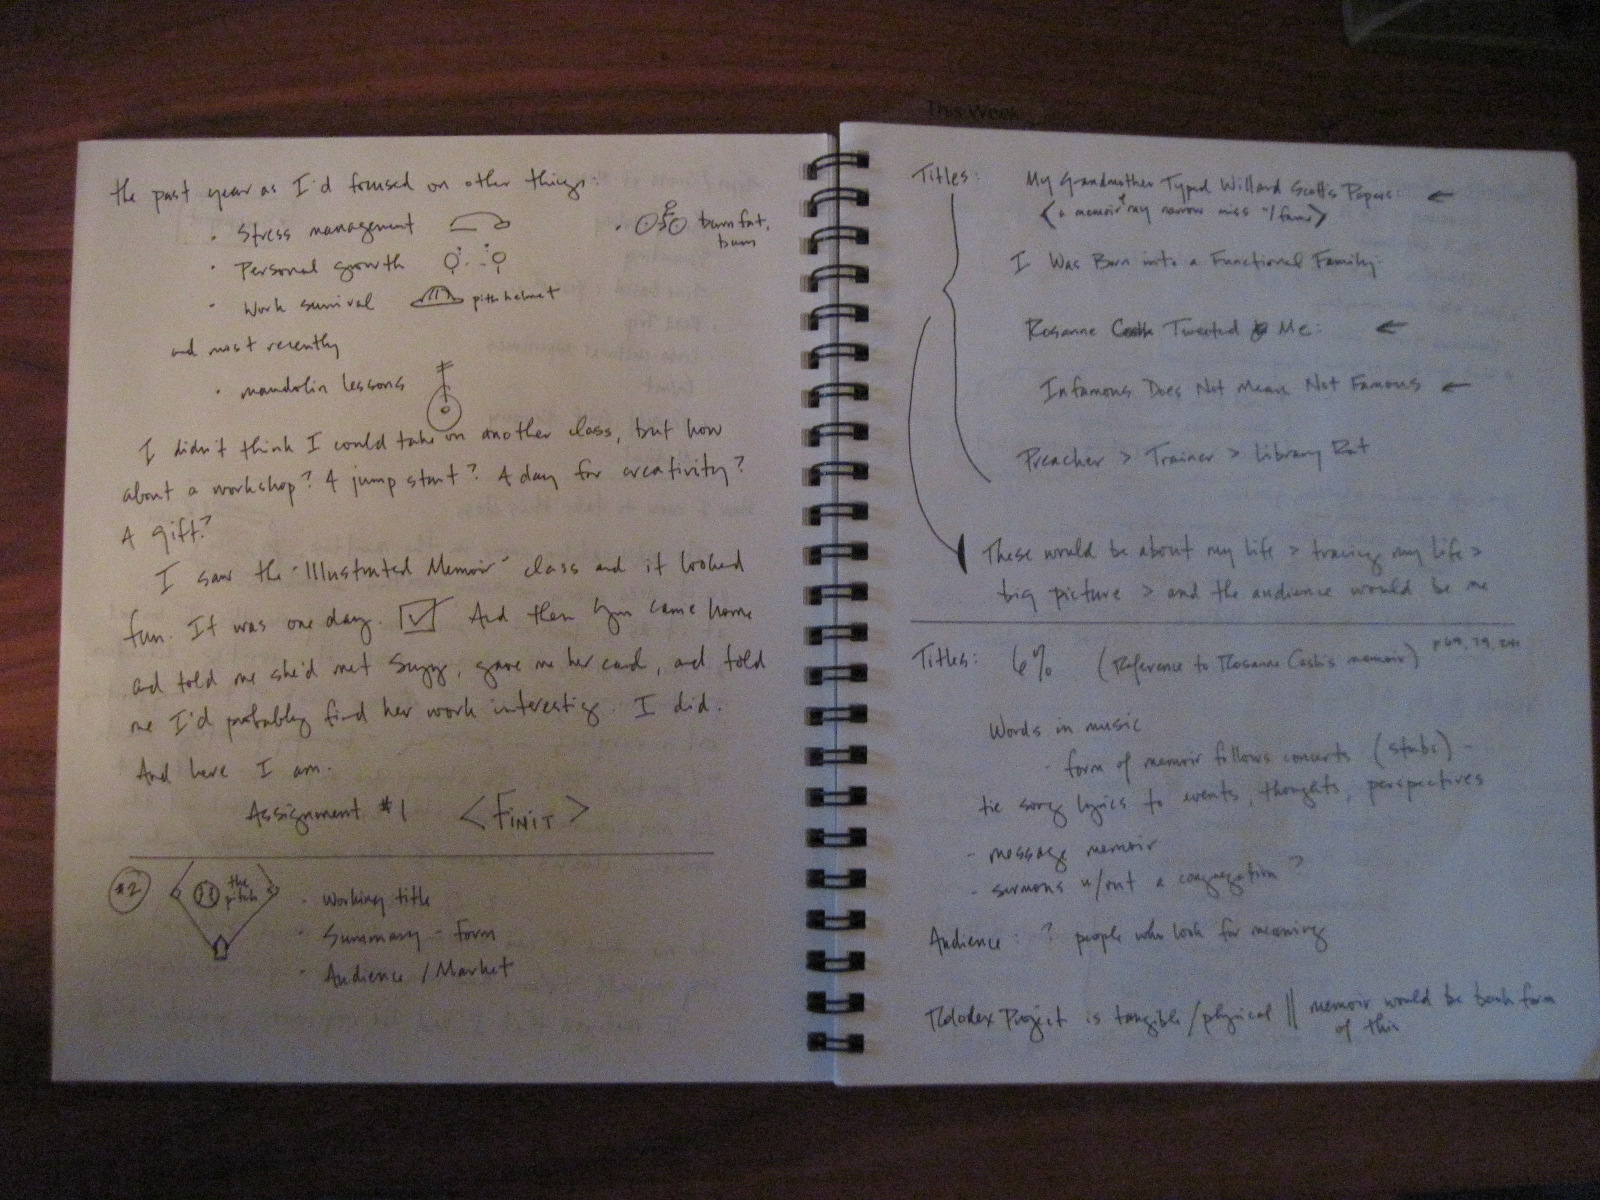 the past year as I'd focused on other things:
• Stress management
• burn fat,
burn
• Personal growth
• Work survival pith helmet
and most recently
• mandolin lessons
I didn't think I could take on another class, but how
about a workshop? A jump start? A day for creativity?
A gift?
I saw the "Illustrated Memoir" class and it looked
fun. It was one day. And then Lyn came home
and told me she'd met Suzy, gave me her card, and told
me I'd probably find her work interesting. I did.
And here I am.
Assignment #1 <FINIT>
#2
the
pitch
• Working title
• Summary - form
• Audience / Market
This Week
Titles: My Grandmother Typed Willard Scott's Papers:
<a memoir of my narrow miss w/ fame>
I Was Born into a Functional Family:
Rosanne Cash Tweeted Me:
Infamous Does Not Mean Not Famous
Preacher > Trainer > Library Rat
These would be about my life > tracing my life >
big picture > and the audience would be me
Titles: 6% (Reference to Rosanne Cash's memoir) p 69, 79,
Words in music
- form of memoir follows concerts (stubs) -
tie song lyrics to events, thoughts, perspectives
- message memoir
- sermons w/out a congregation?
Audience: ? people who look for meaning
Rolodex Project is tangible/physical || memoir would be book form
of this